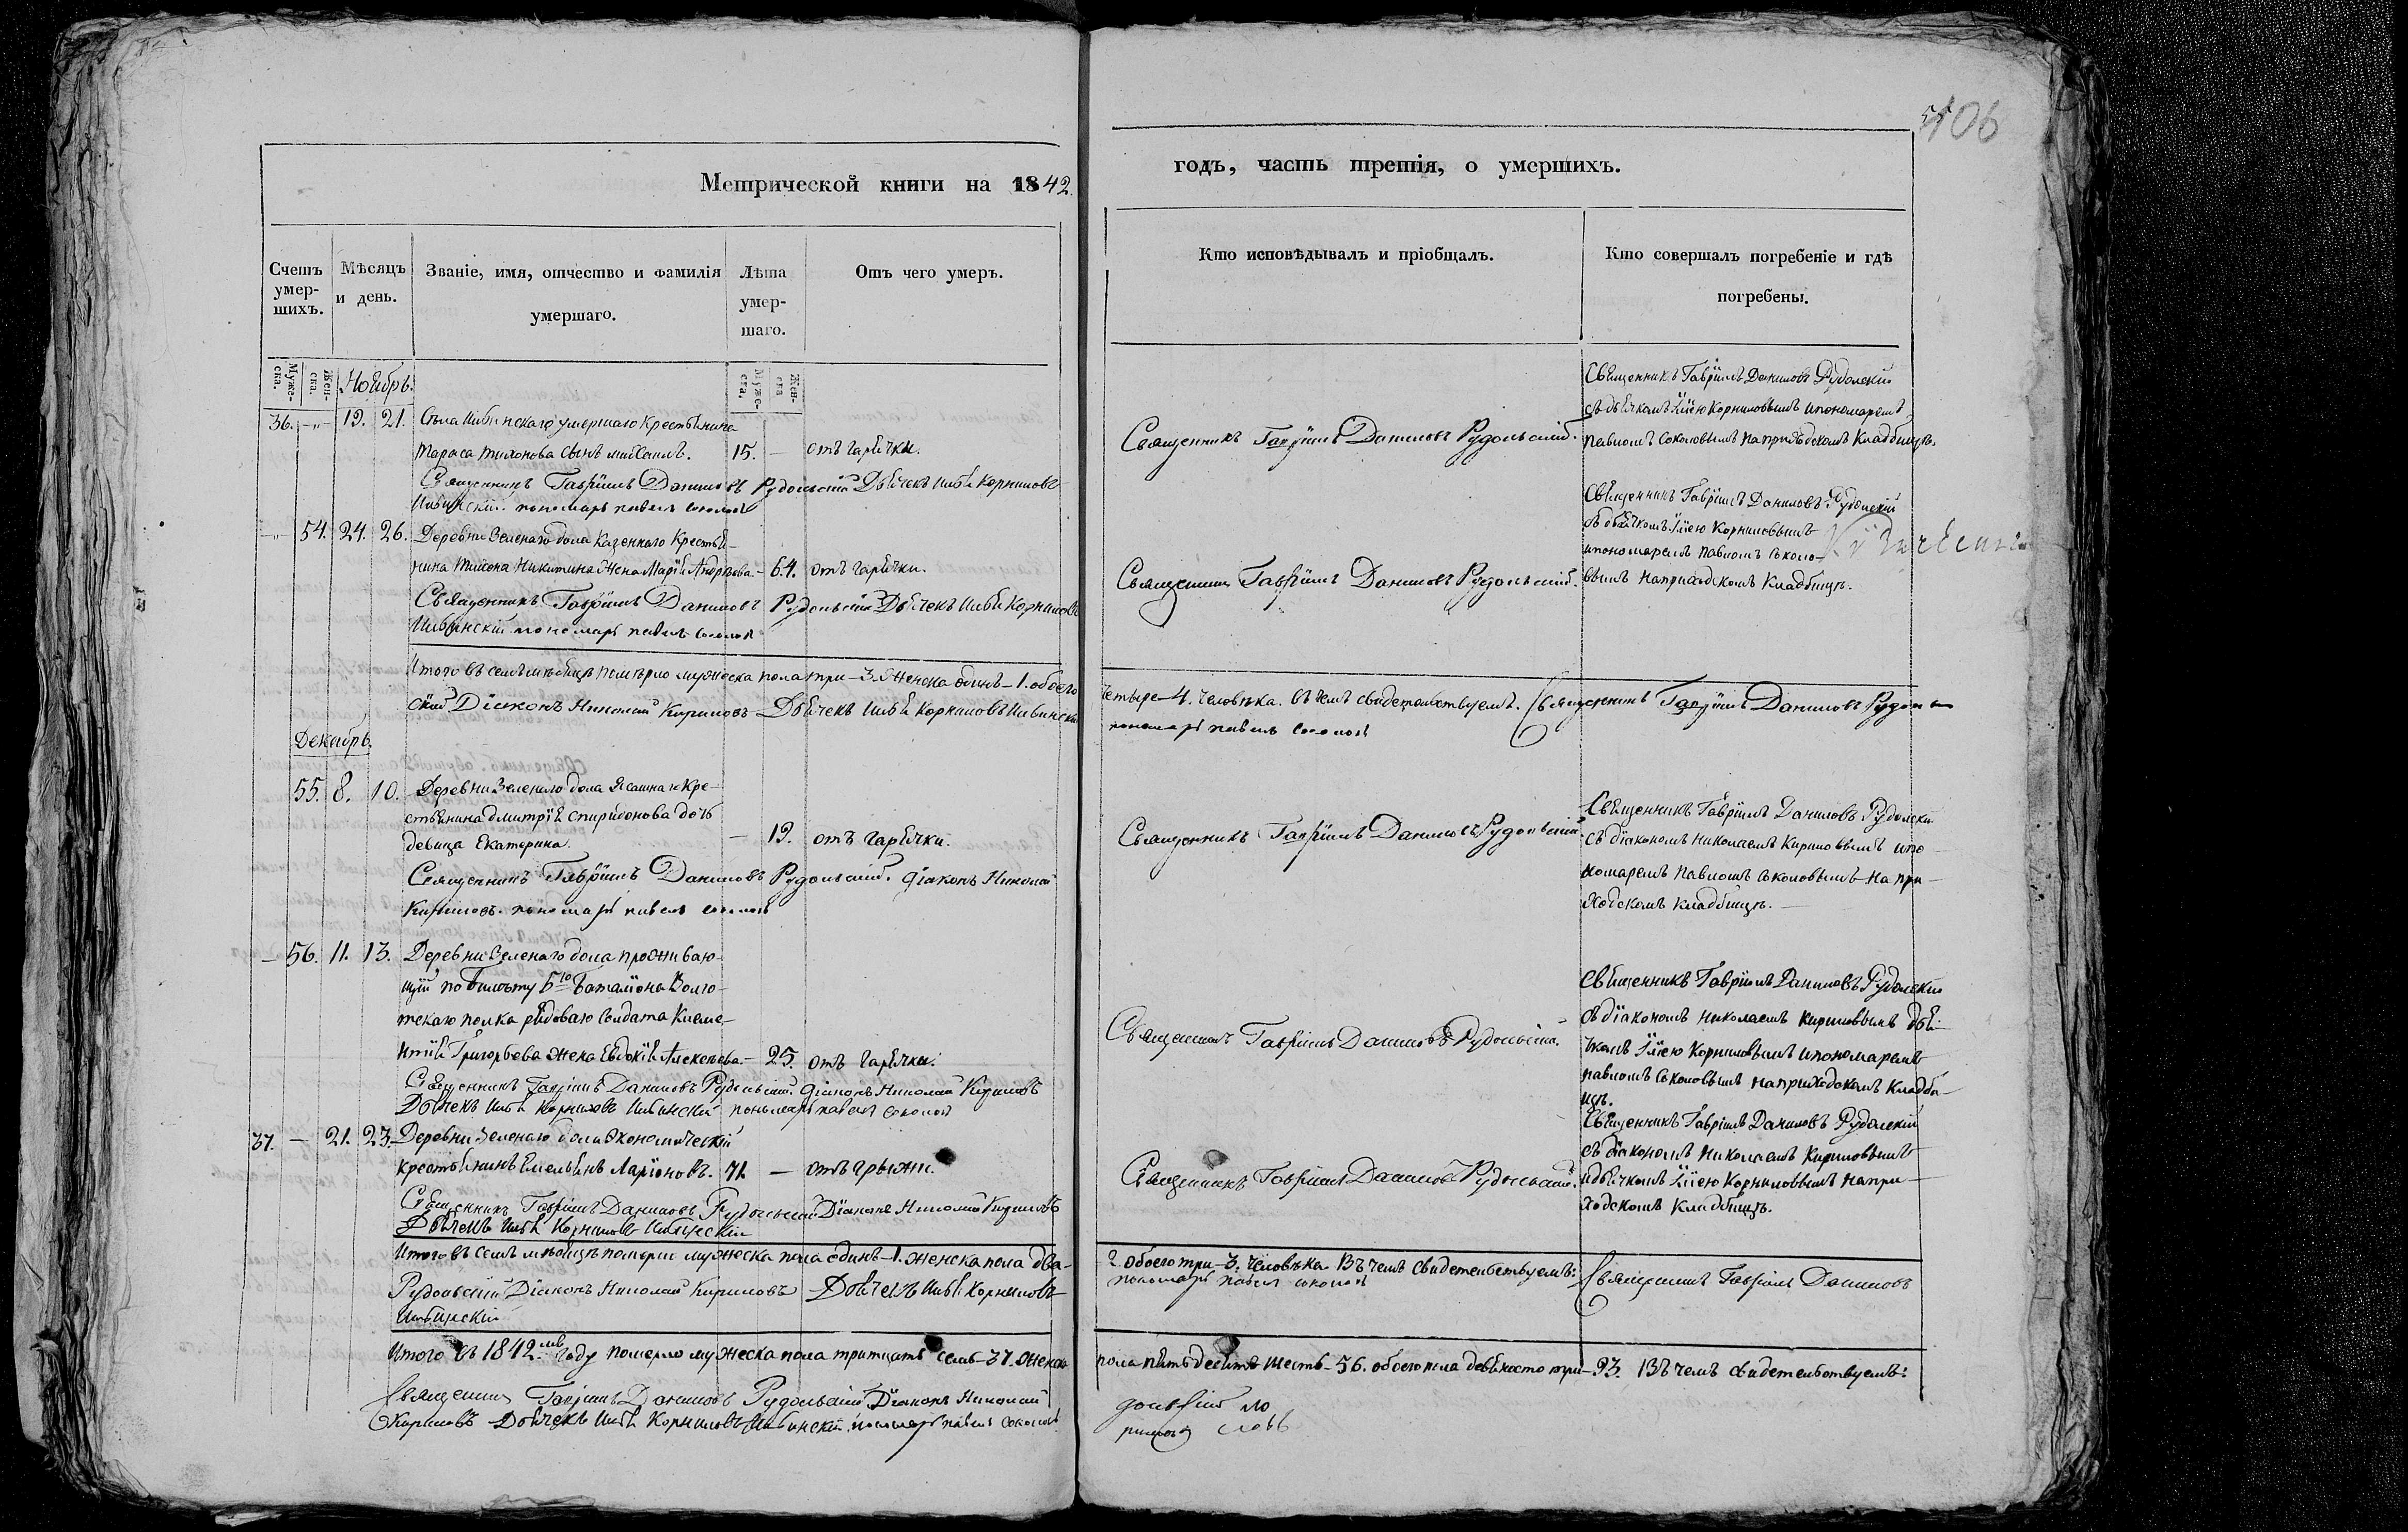 406
Метрической книги на 1842.
годъ, часть третія, о умершихъ.
Счетъ умер-шихъ.
Мѣсяцъ и день.
Званіе, имя, отчество и фамилія умершаго.
Лѣта умер-шаго.
Отъ чего умеръ.
Кто исповѣдывалъ и пріобщалъ.
Кто совершалъ погребеніе и гдѣ погребены.
Муже-ска.
Жен-ска.
Ноябрь.
Муже-ска.
Жен-ска
36. -„- 19. 21. Села умершаго крестьянина
Тараса Тихонова сынъ Михаилъ. 15. — отъ гарячки.
Священникъ Гавріилъ Даниловъ Рудольскій Дьячекъ Илья Корниловъ
пономарь Павелъ Соколовъ
Священникъ Гавріилъ Даниловъ Рудольскій.
Священникъ Гавріилъ Даниловъ Рудолскій
съ дьячкомъ Іліею Корниловымъ ипономаремъ
Павломъ Соколовымъ наприходскомъ Кладбищѣ.
-„- 54. 24. 26. Деревни Зеленаго дола Казеннаго Крестья-
нина Никитина жена Марія Андреева - 64. отъ гарячки.
Священникъ Гавріилъ Даниловъ Рудольскій Дьячекъ Илья Корниловъ
пономарь Павелъ Соколовъ
Священникъ Гавріилъ Даниловъ Рудольскій.
Священникъ Гавріилъ Даниловъ Рудолскій
съ дьячкомъ Іліею Корниловымъ
ипономаремъ Павломъ Соколо-
вымъ наприходскомъ Кладбищѣ.
Итого въ семъ мѣсяцѣ померло мужеска пола три - 3. женска одинъ - 1. обоего
четыре 4. человѣка. въ чемъ свидетельствуемъ. Священникъ Гавріилъ Даниловъ Рудоль
скій Діаконъ Николай Кириловъ Дьячекъ Илья Корниловъ
пономарь Павелъ Соколовъ
Декабрь.
55. 8. 10. Деревни Зеленаго дола Ясашнаго Кре-
стьянина Дмитрія Спиридонова дочь
девица Екатерина. — 19. отъ гарячки.
Священникъ Гавріилъ Даниловъ Рудольскій. Діаконъ Николай
Кириловъ. пономарь Павелъ Соколовъ
Священникъ Гавріилъ Даниловъ Рудольскій.
Священникъ Гавріилъ Даниловъ Рудолскій
съ діакономъ Николаемъ Кириловымъ ипо-
номаремъ Павломъ Соколовымъ на при-
ходскомъ кладбищѣ. —
— 56. 11. 13. Деревни Зеленаго дола проживаю-
щій по билету 5го Баталіона
полка рядоваго солдата Климе-
нтія Григорьева жена Евдокія Алексѣева - 25. отъ гарячки.
Священникъ Гавріилъ Даниловъ Рудольскій. Діаконъ Николай Кириловъ
Дьячекъ Илья Корниловъ пономарь Павелъ Соколовъ
Священникъ Гавріилъ Даниловъ Рудольскій.
Священникъ Гавріилъ Даниловъ Рудолскій
съ діакономъ Николаемъ Кириловымъ дья-
чкомъ Іліею Корниловымъ ипономаремъ
Павломъ Соколовымъ наприходскомъ Кладби-
щѣ.
37. — 21. 23. Деревни Зеленаго дола Экономическій
крестьянинъ Емельянъ Ларіоновъ. 71. — отъ грыжи.
Священникъ Гавріилъ Даниловъ Рудольскій Діаконъ Николай Кириловъ
Дьячекъ Илья Корниловъ
Священникъ Гавріилъ Даниловъ Рудольскій.
Священникъ Гавріилъ Даниловъ Рудолскій
съ діакономъ Николаемъ Кириловымъ
идьячкомъ Іліею Корниловымъ напри-
ходскомъ Кладбищѣ.
Итого въ семъ мѣсяцѣ померли мужеска пола одинъ - 1. женска пола два -
2 обоего три - 3. человѣка. Въ чемъ свидетельствуемъ: Священникъ Гавріилъ Даниловъ
Рудольскій Діаконъ Николай Кириловъ Дьячекъ Илья Корниловъ
пономарь Павелъ Соколовъ
Итого въ 1842мъ году померло мужеска пола тритцать семь - 37. женска
пола пятьдесятъ шесть - 56. обоего пола девяносто три - 93. Въ чемъ свидетельствуемъ:
Священникъ Гавріилъ Даниловъ Рудольскій Діаконъ Николай
Кириловъ Дьячекъ Илья Корниловъ пономарь Павелъ Соколовъ